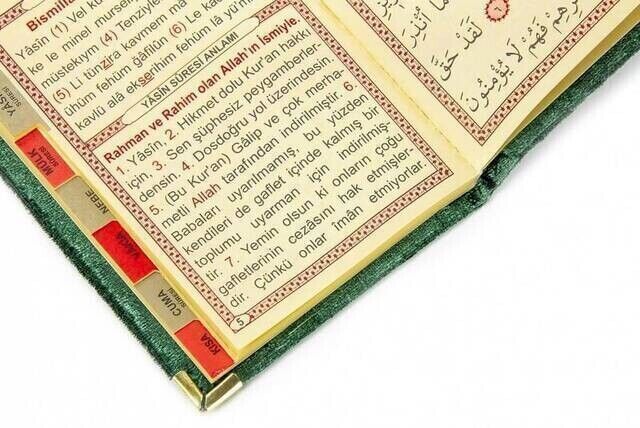 Bismille
Yâsîn (1) Vel ku
ke le minel mursel
müstekıym (4) Tenziyle
(5) Li tünzira kavmem
ühüm fehüm ğâfilûn (6) Le kad
kavlü alâ ekserihim fehüm lâ yü'm
YÂSİN SÛRESİ ANLAMI
Rahman ve Rahim olan Allah'ın İsmiyle.
1. Yâsîn, 2. Hikmet dolu Kur'an hakkı
için, 3. Sen şüphesiz peygamberler-
densin. 4. Dosdoğru yol üzerindesin.
5. (Bu Kur'an) Gâlip ve çok merha-
metli Allah tarafından indirilmiştir. 6.
Babaları uyarılmamış, bu yüzden
kendileri de gaflet içinde kalmış bir
toplumu uyarman için indirilmiş-
tir. 7. Yemin olsun ki onların çoğu
gafletlerinin cezasını hak etmişler-
dir. Çünkü onlar îmân etmiyorlar.
5
YÂSİN
SÛRESİ
MÜLK
SÛRESİ
NEBE
VAKIA
CUMA
SURESİ
KISA
لَقَدْ حَقَّ
فَهُمْ لَا يُؤْمِنُونَ